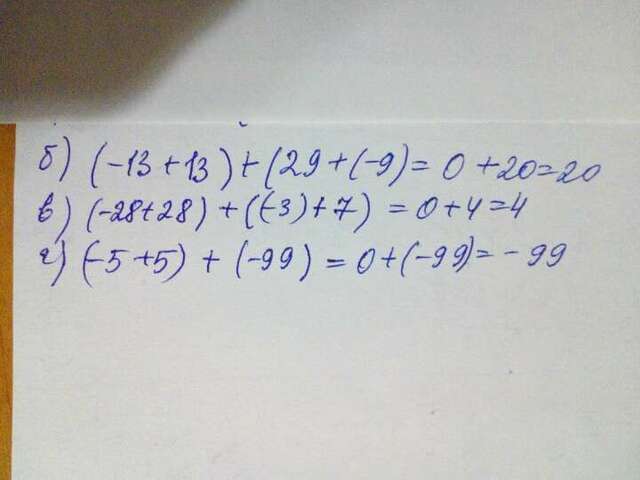 б) (-13+13)+(29+(-9)=0+20=20
в) (-28+28)+((-3)+7)=0+4=4
г) (-5+5)+(-99)=0+(-99)=-99